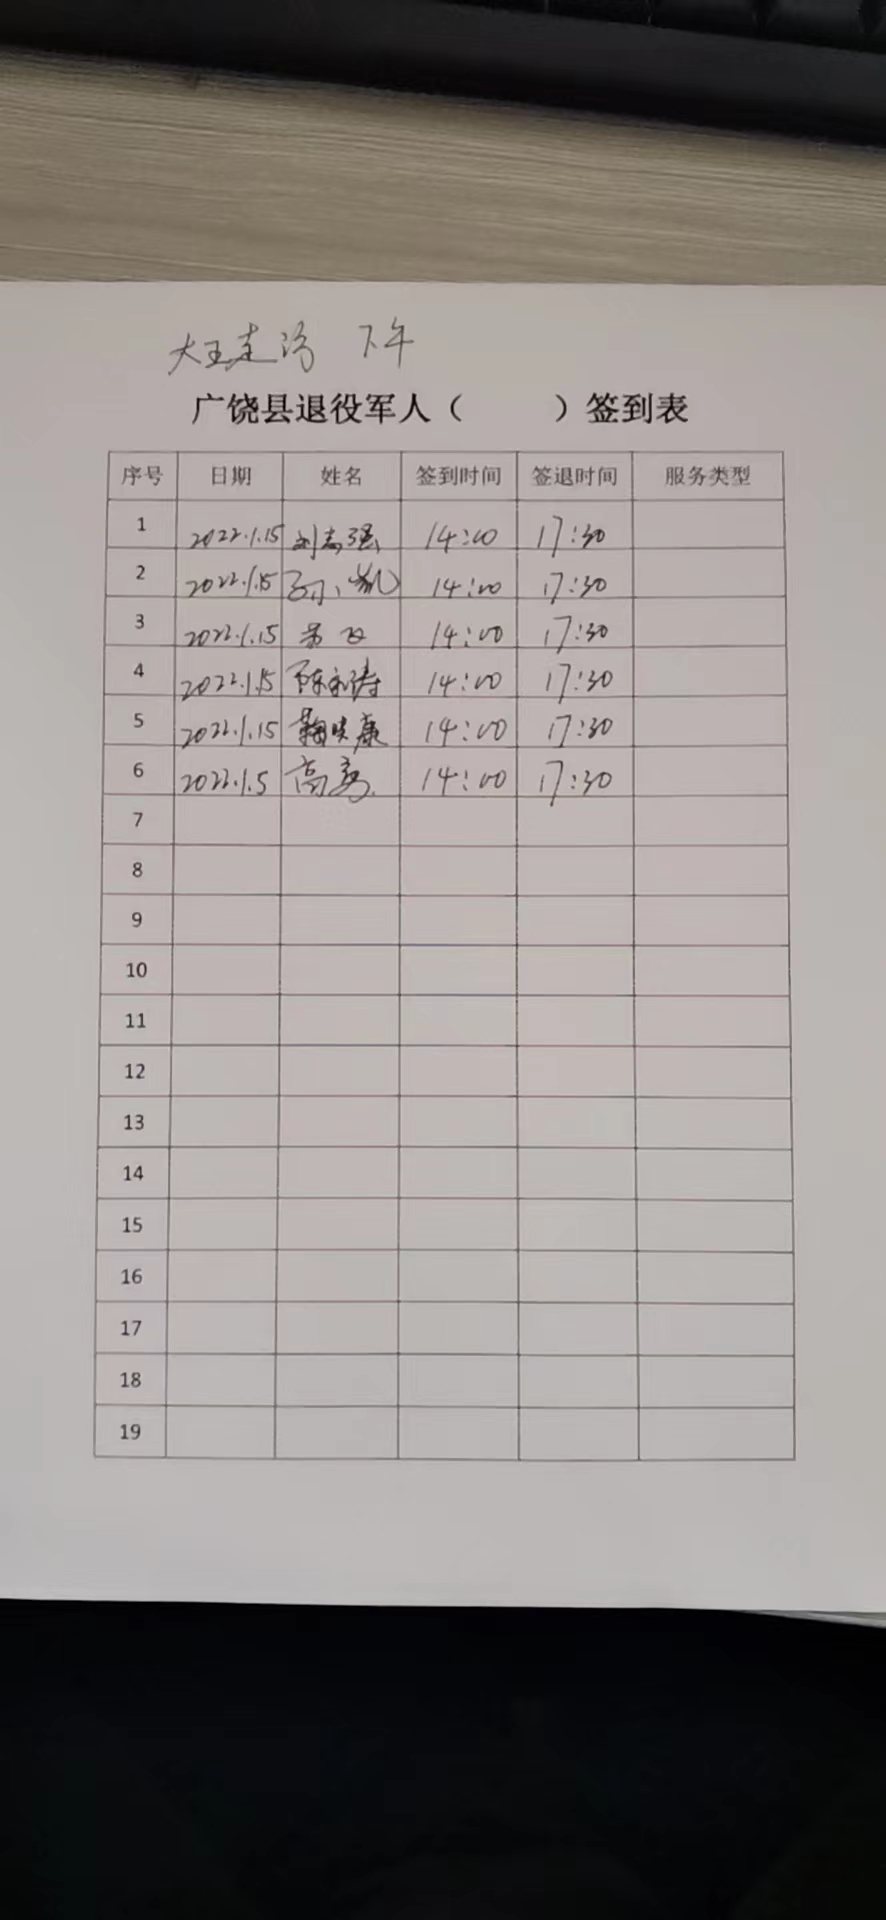 大王走访 下午
广饶县退役军人（ ）签到表
序号 日期 姓名 签到时间 签退时间 服务类型
1 2022.1.15 刘志强 14:00 17:30
2 2022.1.15 14:00 17:30
3 2022.1.15 14:00 17:30
4 2022.1.15 14:00 17:30
5 2022.1.15 鞠 康 14:00 17:30
6 2022.1.5 高 14:00 17:30
7
8
9
10
11
12
13
14
15
16
17
18
19